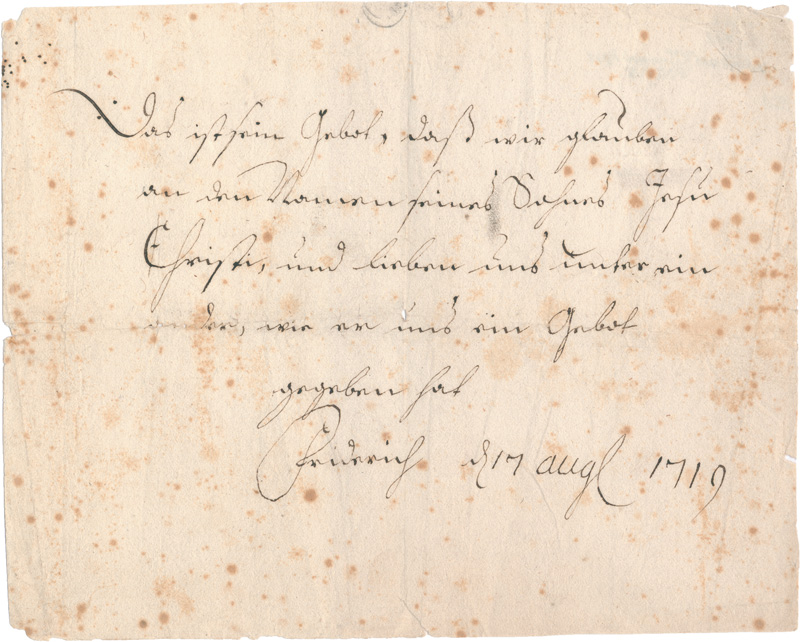 Das ist sein Gebot, daß wir glauben
an den Namen seines Sohnes Jesu
Christi, und lieben uns unter ein
ander, wie er uns ein Gebot
gegeben hat
Friderich d 17 augl 1719